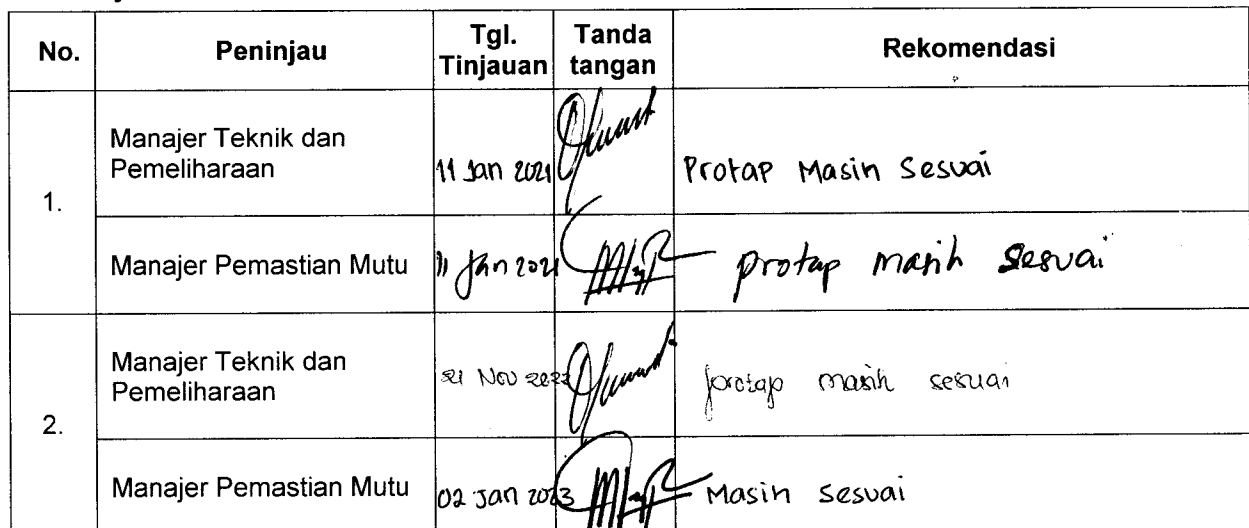 No. Peninjau Tgl. Tinjauan Tanda tangan Rekomendasi
1.
Manajer Teknik dan Pemeliharaan 11 Jan 2021 Protap Masih Sesuai
Manajer Pemastian Mutu 11 Jan 2021 protap masih sesuai
2.
Manajer Teknik dan Pemeliharaan 21 Nov 2022 protap masih sesuai
Manajer Pemastian Mutu 02 Jan 2023 Masih sesuai